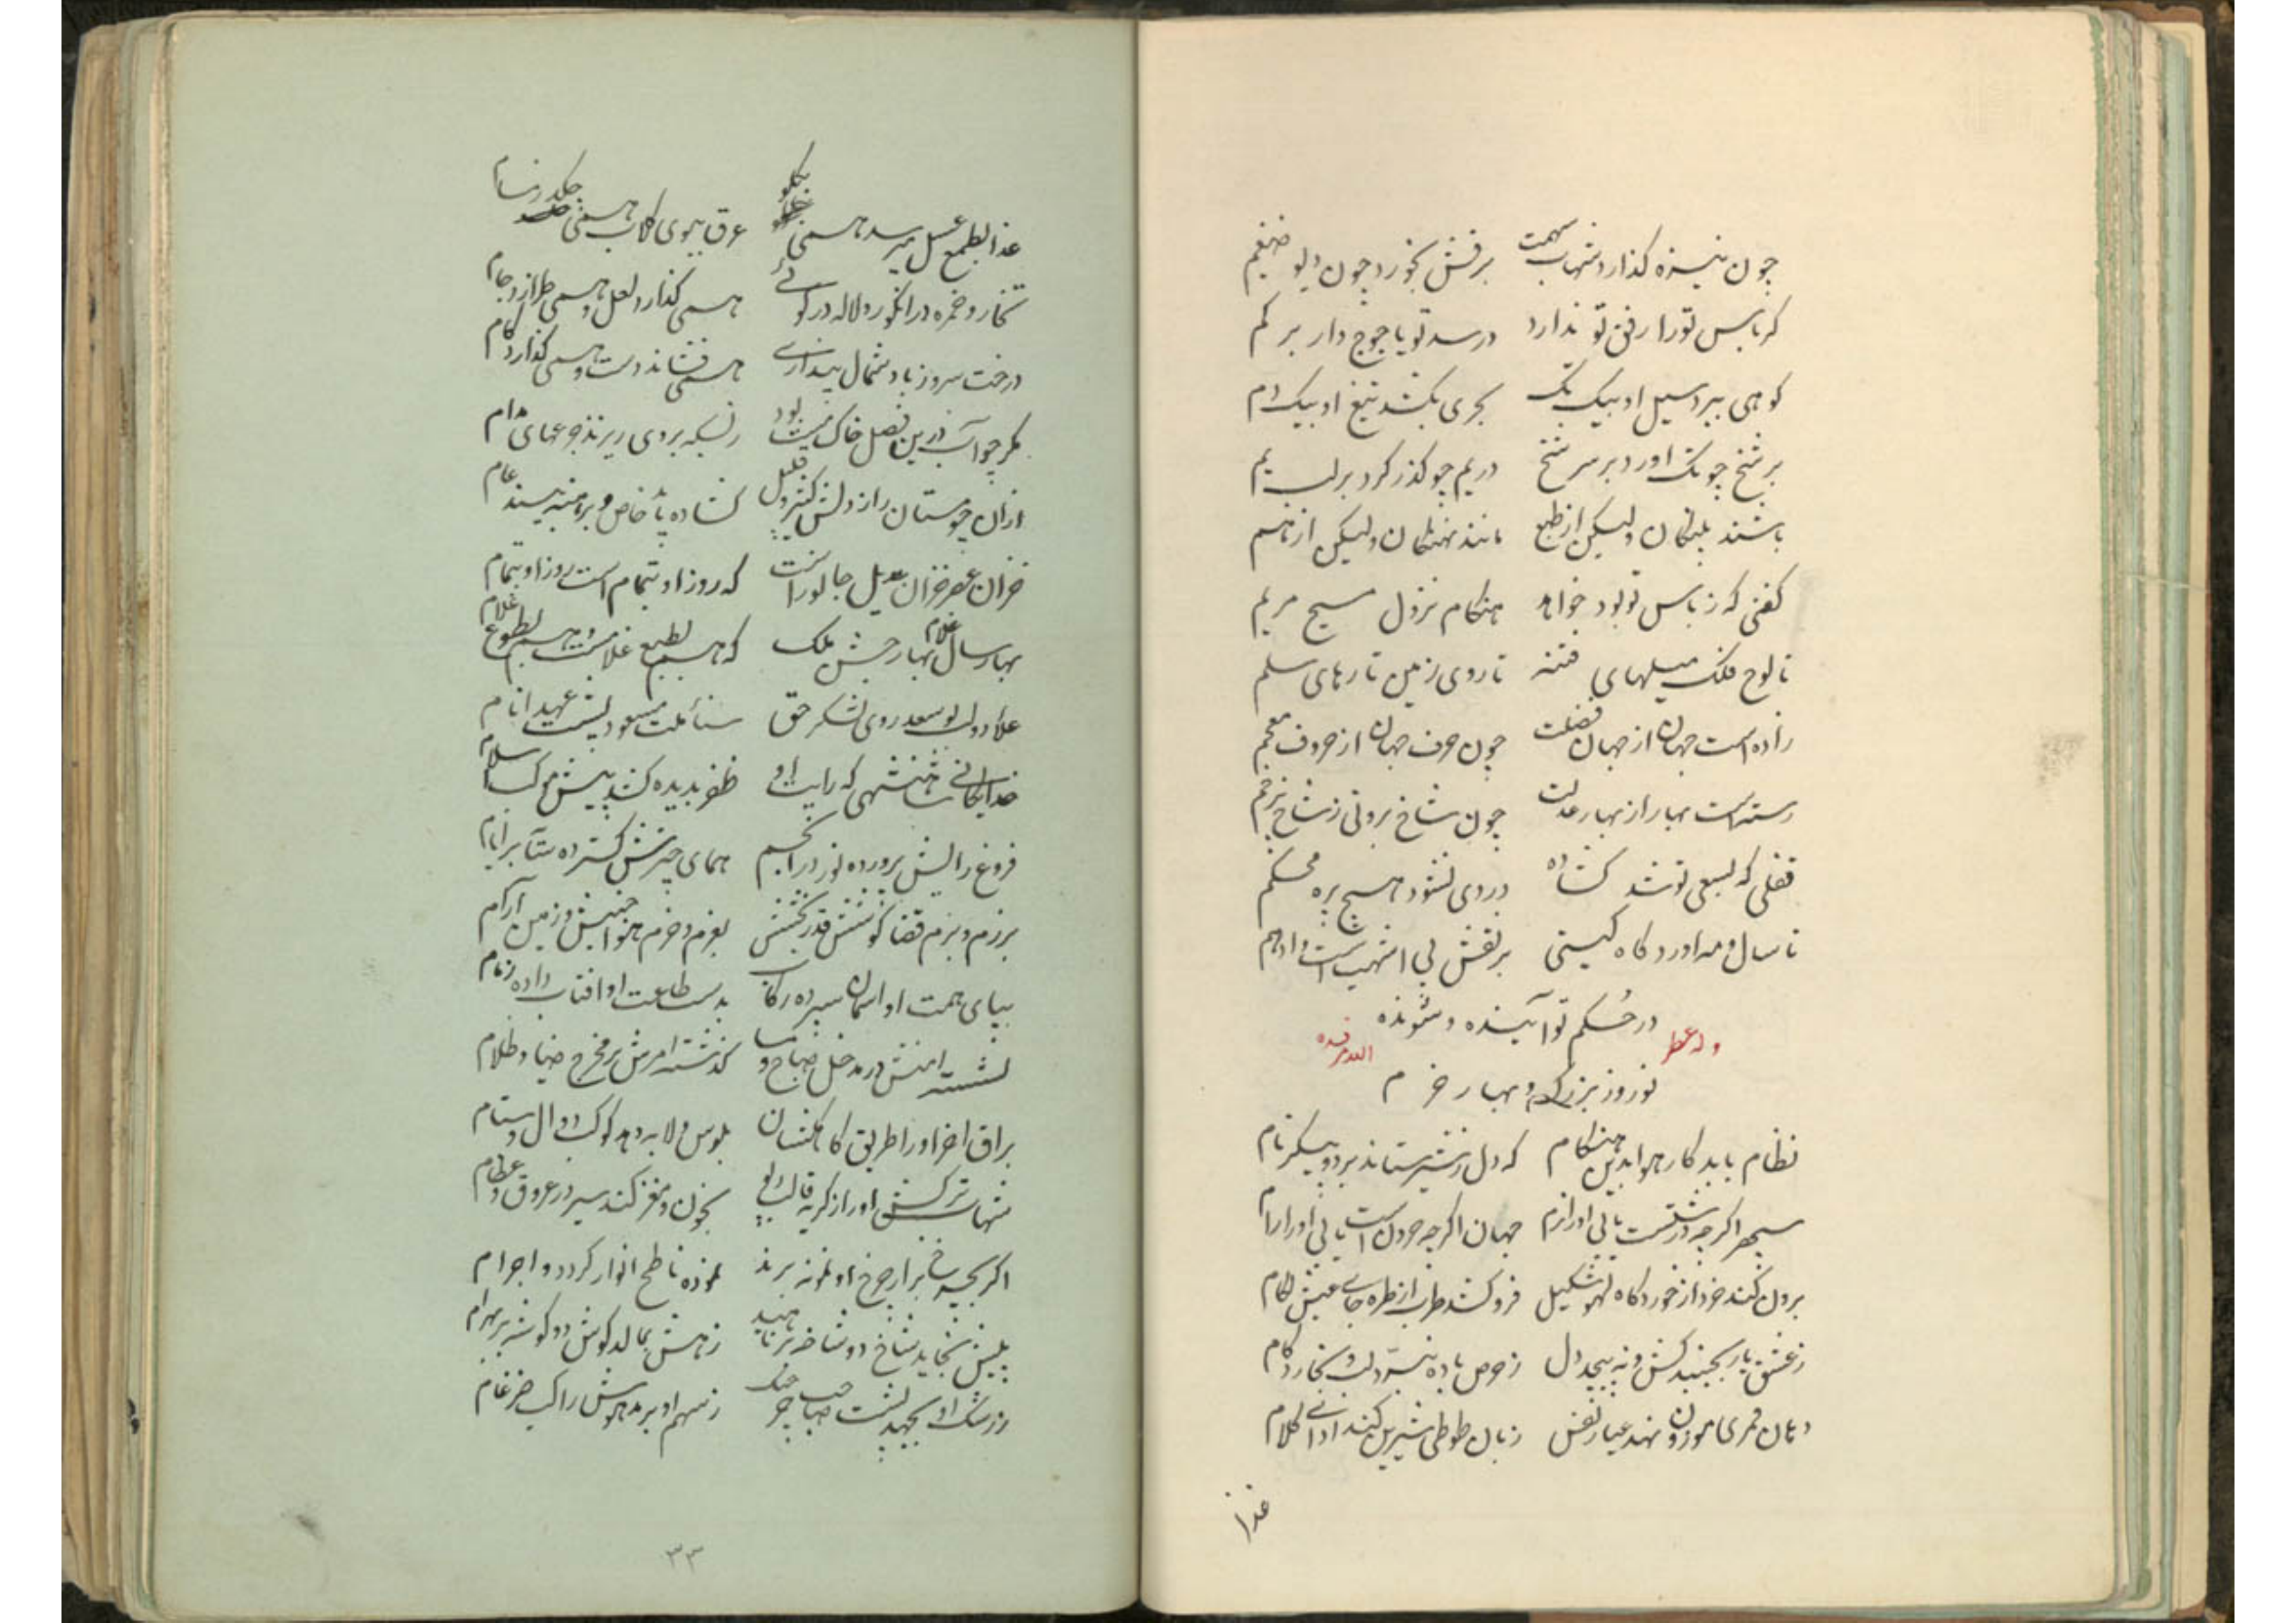 چون نیزه گذارد شهاب سهمت برفتش بخورد چون دیو ضیغم
کر باس تو را رفق تو ندارد درسد تو یاجوج دار برکم
کوهی ببرد سیل او بیک تک بحری بکشد تیغ او بیک دم
بر شخ چو تک اورد بر سر شخ در یم چو گذر کرد بر لب یم
باشند پلنگان ولیکن از طبع مانند نهنگان ولیکن از هم
گفتی که ز باس تو بود خواهد هنگام نزول مسیح مریم
تا لوح فلک میلهای فتنه تا روی زمین تارهای سلم
زاده است جهان از جهان فضلت چون حرف جهان از حروف معجم
رسته است بهار از بهار عدلت چون شاخ برونی ز شاخ پرخم
قفلی که بسعی تو شد گشاده در وی نشود هیچ پره محکم
تا سال و مه اورد گاه گیتی بر نقش پی اشهب است و ادهم
در حکم تو آینده و شونده
نوروز بزرگ و بهار خرم
وله عطر الله مرقده
نظام باید کار هوا بدین هنگام که دل ز نشیر ستاند بر دو پیکر نام
سپهر اگر چه درشتست یابی او را نرم جهان اگر چه حرونست یابی او را رام
برون کند خرد از خوردگاه لهو شکیل فرو کشد طرب از طره جای عیش لگام
ز عشق یار بجنبد کش و نه پیچد دل ز حرص باده بپرد لب و بخارد کام
دهان قمری موزون نهد عیار نفس زبان طوطی شیرین کند ادای کلام
غذا
غذا بطمع عسل میرسد همی بگلو عرق ببوی گلاب همی چکد ز مسام
بخار و خمره در انگور و لاله در کوئی همی گذارد لعل و همی طرازد جام
درخت سرو ز باد شمال پنداری همی فشاند دست و همی گذارد گام
مگر چو آب درین فصل خاک میت بود ز بسکه بر وی ریزند جرعهای مدام
از آن چو مستان راز دلش کثیر و قلیل گشاده یا خاص و برهنه پیسند عام
خزان عصر خزان عدیل جالوراست که روز او بتمام است روز او بتمام
بهار سال غلام بهار جشن ملک که هم بطبع غلامست و هم بطوع غلام
علاء دولت بوسعد روی لشکر حق سناء ملت مسعود پشت عهد انام
خدایگانی شاهنشهی که رایت او ظفر بدیده کند پیش موکبش سلام
فروغ رایش پرورده نور در انجم همای چترش گسترده سایه بر ایام
برزم و بزم قضا کوشش و قدر بخشش بعزم و حزم هوا جنبش و زمین آرام
بپای همت او اسمان سپرده رکاب بدست طاعت او افتاب داده زمام
نشسته امنش در مدخل صباح و مسا گذشته امرش بر مخرج ضیاء و ظلام
براق اخر او را طریق کاهکشان بلوس و لابه دهد کوکب دوال و ستام
شهاب ترکش او را ز گریه قالب دیو بخون و مغز کند سیر در عروق و عظام
اگر بچرخ بر از چرخ او نمونه برند زده ناطح انوار گردد و اجرام
پلیش بخاید شاخ دو شاخه بر ناهید زهش بمالد گوش دو گوشه بر بهرام
ز رشک او بجهد پشت صاحب خرچنگ ز سهم او برمد هوش راکب ضرغام
۳۳